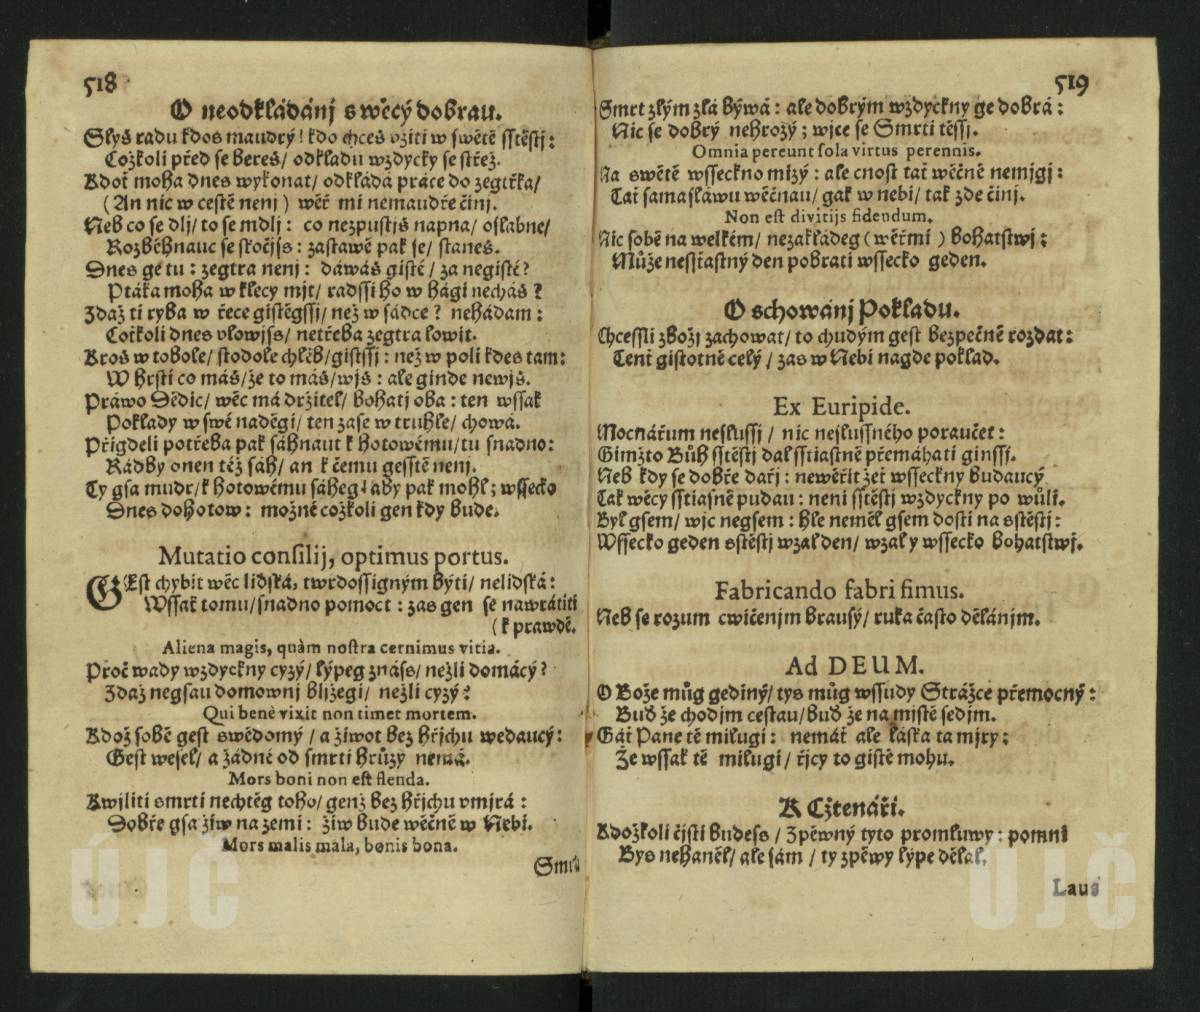 518
O neodkládánj s wěcý dobrau.
Slyš radu kdos maudrý! kdo chceš vžiti w swětě sstěstj:
Cožkoli před se bereš/ odkladu wždycky se střež.
Kdož moha dnes wykonat/ odkládá práce do zegtřka/
(An nic w cestě nenj) wěř mi nemaudře činj.
Neb co se dlj/ to se mdlj: co nezpustjš napna/ oslabne/
Rozběhnauc se skočjss: zastawě pak se/ staneš.
Dnes ge tu: zegtra nenj: dáwáš gisté/ za negisté?
Ptáka moha w klecy mjt/ radssi ho w hági necháš?
Zdaž ti ryba w řece gistěgssj/ než w sádce? nehádam:
Cožkoli dnes vlowjss/ netřeba zegtra lowit.
Kroš w tobole/ stodole chléb/gistssj: než w poli kdes tam:
W hrsti co máš/že to máš/wjš: ale ginde newjš.
Práwo Dědic/ wěc má držitel/ bohatj oba: ten wssak
Poklady w swé naděgi/ ten zase w truhle/ chowá.
Přigdeli potřeba pak sáhnaut k hotowému/tu snadno:
Rádby onen též sáh/ an k čemu gesstě nenj.
Ty gsa mudr/k hotowému sáheg! aby pak mohl; wssecko
Dnes dohotow: možné cožkoli gen kdy bude.
Mutatio consilij, optimus portus.
GEst chybit wěc lidská, twrdossigným býti/ nelidská:
Wssak tomu/snadno pomoct: zas gen se nawrátiti
(k prawdě.
Aliena magis, quàm nostra cernimus vitia.
Proč wady wždyckny cyzý/ lýpeg znáss/ nežli domácý?
Zdaž negsau domownj bližegi/ nežli cyzý?
Qui benè vixit non timet mortem.
Kdož sobě gest swědomý / a žiwot bez hřjchu wedaucý:
Gest wesel/ a žádné od smrti hrůzy nemá.
Mors boni non est flenda.
Kwjliti smrti nechtěg toho/ genž bez hřjchu vmjrá:
Dobře gsa žiw na zemi: žiw bude wěčně w Nebi.
Mors malis mala, bonis bona.
Smrt
519
Smrt zlým zlá býwá: ale dobrým wždyckny ge dobrá:
Nic se dobrý nehrozý; wjce se Smrti těssj.
Omnia pereunt sola virtus perennis.
Na swětě wsseckno mizý: ale cnost tať wěčně nemjgj:
Tať sama sláwu wěčnau/ gak w nebi/ tak zde činj.
Non est divitijs fidendum.
Nic sobě na welkém/ nezakládeg (wěřmi) bohatstwj:
Může nessťastný den pobrati wssecko geden.
O schowánj Pokladu.
Chcessli zbožj zachowat/ to chudým gest bezpečně rozdat:
Tenť gistotně celý / zas w Nebi nagde poklad.
Ex Euripide.
Mocnářum neslussj / nic neslussného poraučet:
Gimžto Bůh sstěstj dal sstiastně přemáhati ginssj.
Neb kdy se dobře dařj: newěřit žeť wsseckny budaucý
Tak wěcy sstiasně pudau: neni sstěstj wždyckny po wůli.
Byl gsem/ wjc negsem: hle neměl gsem dosti na sstěstj:
Wssecko geden sstěstj wzal den/ wzal y wssecko bohatstwj.
Fabricando fabri fimus.
Neb se rozum cwičenjm brausý/ ruka často dělánjm.
Ad DEUM.
O Bože můg gediný/ tys můg wssudy Strážce přemocný:
Buď že chodjm cestau/buď že na mjstě sedjm.
Gáť Pane tě milugi: nemáť ale láska ta mjry:
Že wssak tě milugi/ řjcy to gistě mohu.
K Cžtenáři.
Kdožkoli čjsti budess / Zpěwný tyto promluwy: pomni
Bys nehaněl/ ale sám / ty zpěwy lýpe dělal.
Laus
UJČ
UJČ